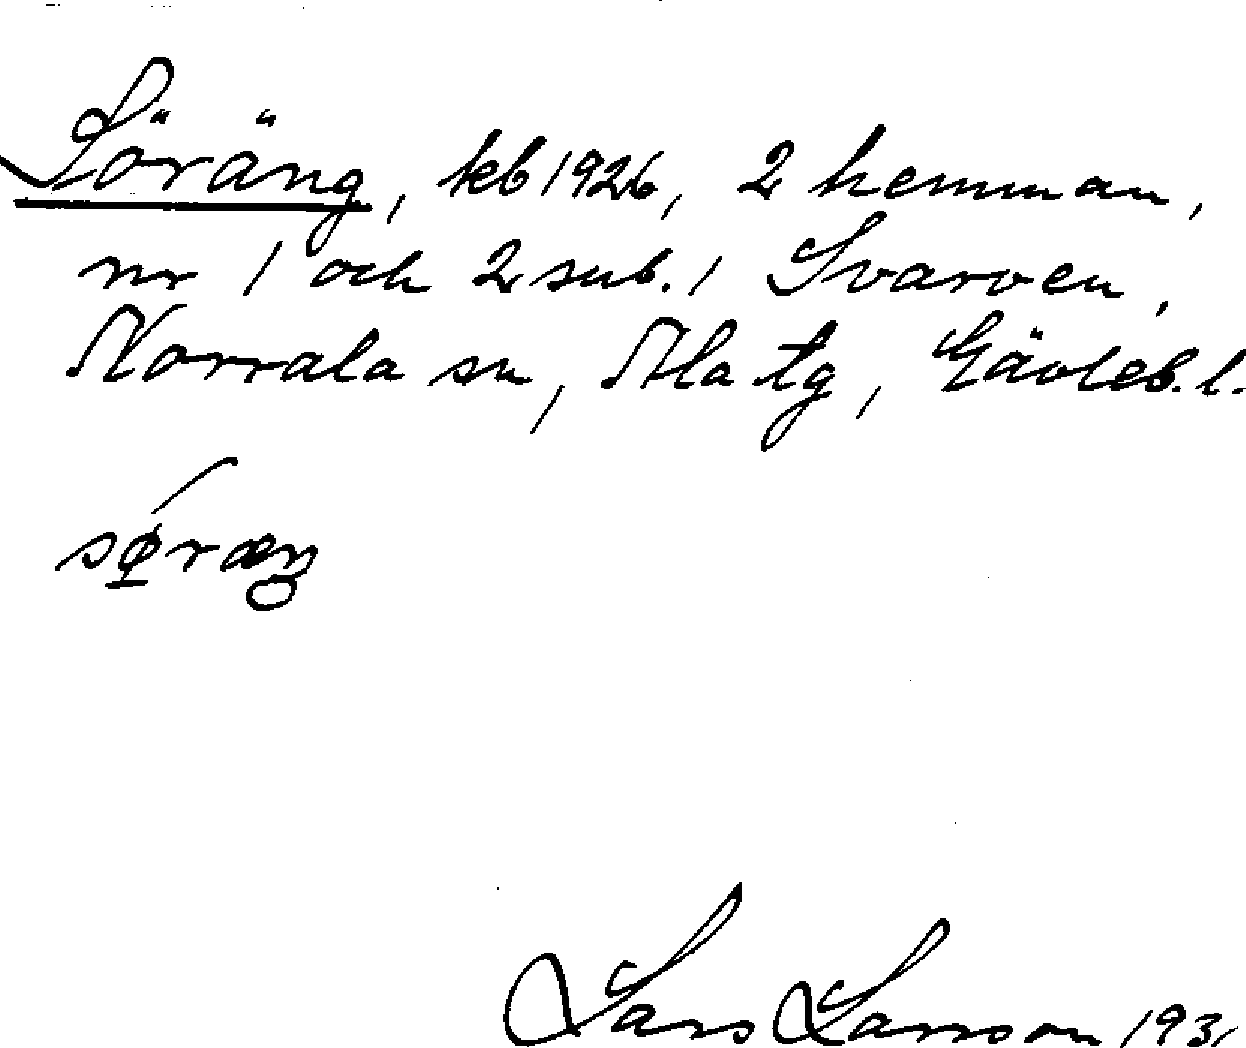 Söräng, kb 1926, 2 hemman,
nr 1 och 2 sub. i Svarven,
Norrala sn, Ala tg, Gävleb. l.
Lars Larsson 193